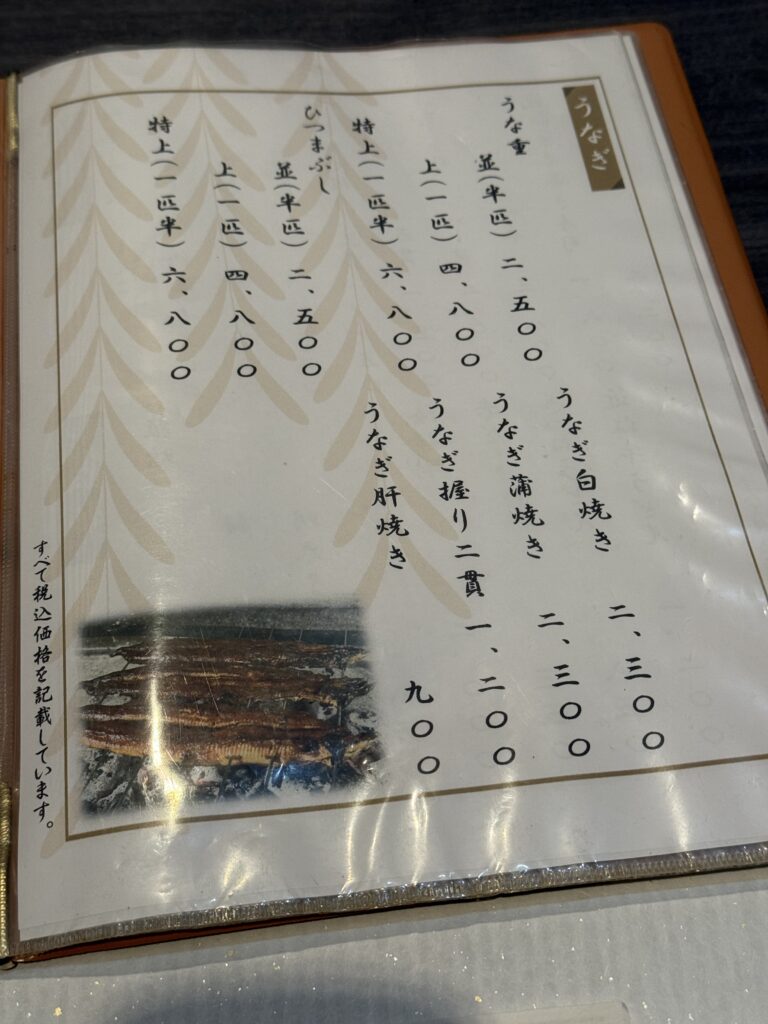 うなぎ
うな重
並(半匹) 二、五〇〇
上(一匹) 四、八〇〇
特上(一匹半) 六、八〇〇
ひつまぶし
並(半匹) 二、五〇〇
上(一匹) 四、八〇〇
特上(一匹半) 六、八〇〇
うなぎ白焼き 二、三〇〇
うなぎ蒲焼き 二、三〇〇
うなぎ握り二貫 一、二〇〇
うなぎ肝焼き 九〇〇
すべて税込価格を記載しています。